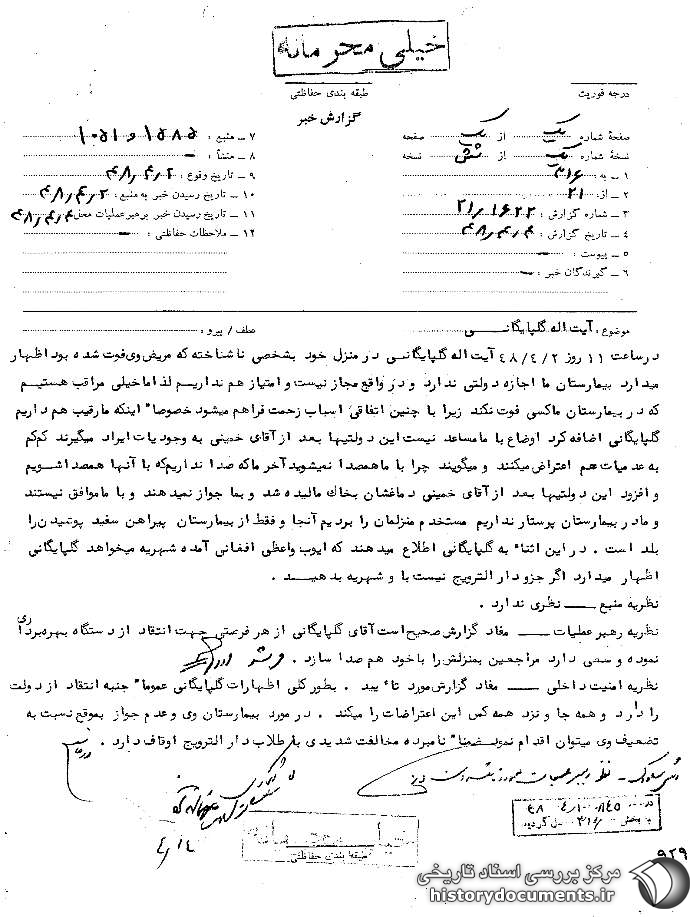 خیلی محرمانه
درجه فوریت
طبقه بندی حفاظتی
گزارش خبر
صفحهٔ شماره یک از یک صفحه
نسخهٔ شماره یک از شش نسخه
۱ ــ به : ۳۱۶
۲ ــ از : ۲۱
۳ ــ شماره گزارش : ۲۱/۱۶۲۲
۴ ــ تاریخ گزارش : ۴۸/۴/۴
۵ ــ پیوست : ــ
۶ ــ گیرندگان خبر : ــ
۷ ــ منبع : ۱۵۸۵ و ۱۰۵۱
۸ ــ منشأ : ــ
۹ ــ تاریخ وقوع : ۴۸/۴/۲
۱۰ ــ تاریخ رسیدن خبر به منبع : ۴۸/۴/۲
۱۱ ــ تاریخ رسیدن خبر برهبر عملیات محل : ۴۸/۴/۴
۱۲ ــ ملاحظات حفاظتی : ــ
موضوع : آیت اله گلپایگانــی
عطف / پیرو :
درساعت ۱۱ روز ۴۸/۴/۲ آیت اله گلپایگانی در منزل خود بشخصی ناشناخته که مریض وی فوت شده بود اظهار
میدارد بیمارستان ما اجازه دولتی ندارد و در واقع مجاز نیست و امتیاز هم نداریم لذا ما خیلی مراقب هستیم
که در بیمارستان ماکسی فوت نکند زیرا با چنین اتفاقی اسباب زحمت فراهم میشود خصوصا" اینکه مارقیب هم داریم
گلپایگانی اضافه کرد اوضاع با مامساعد نیست این دولتیها بعد از آقای خمینی به وجودیات ایراد میگیرند کم کم
به عدمیات هم اعتراض میکنند و میگویند چرا با ماهمصدا نمیشوید آخر ماکه صدا نداریم که با آنها همصدا شویم
و افزود این دولتیها بعد از آقای خمینی دماغشان بخاک مالیده شد و بما جواز نمیدهند و با ماموافق نیستند
و مادر بیمارستان پرستار نداریم مستخدم منزلمان را بردیم آنجا و فقط از بیمارستان پیراهن سفید پوشیدن را
بلد است . در این اثناء به گلپایگانی اطلاع میدهند که ایوب واعظی افغانی آمده شهریه میخواهد گلپایگانی
اظهار میدارد اگر جزو دار الترویج نیست با و شهریه بدهیــد .
نظریه منبع ــ نظری ندارد .
نظریه رهبر عملیات ــ مفاد گزارش صحیح است آقای گلپایگانی از هر فرصتی جهت انتقاد از دستگاه بهره برداری
نموده و سعی دارد مراجعین بمنزلش را با خود هم صدا سازد .
نظریه امنیت داخلی ــ مفاد گزارش مورد تائید . بطور کلی اظهارات گلپایگانی عموما" جنبه انتقاد از دولت
را دارد و همه جا و نزد همه کس این اعتراضات را میکند . در مورد بیمارستان وی و عدم جواز بموقع نسبت به
تضعیف وی میتوان اقدام نمود ضمنا" نامبرده مخالفت شدیدی با طلاب دار الترویج اوقاف دارد .
۴/۱۴
خیلی محرمانه
طبقه بندی حفاظتی
۹۲۹
مرکز بررسی اسناد تاریخی
historydocuments.ir